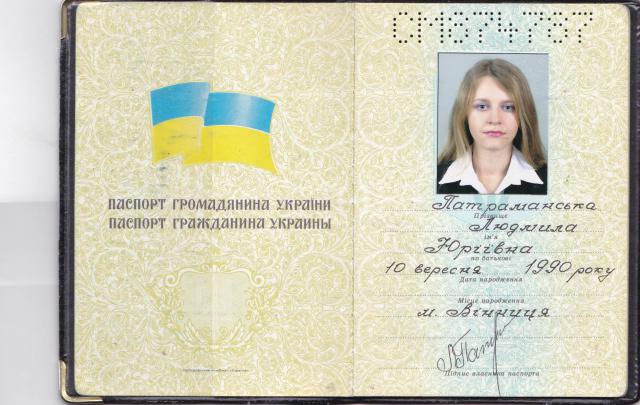 ПАСПОРТ ГРОМАДЯНИНА УКРАЇНИ
ПАСПОРТ ГРАЖДАНИНА УКРАИНЫ
СМ874787
Патраманська
Прізвище
Людмила
ім'я
Юріївна
по батькові
10 вересня 1990 року
Дата народження
Місце народження
м. Вінниця
Підпис власника паспорта